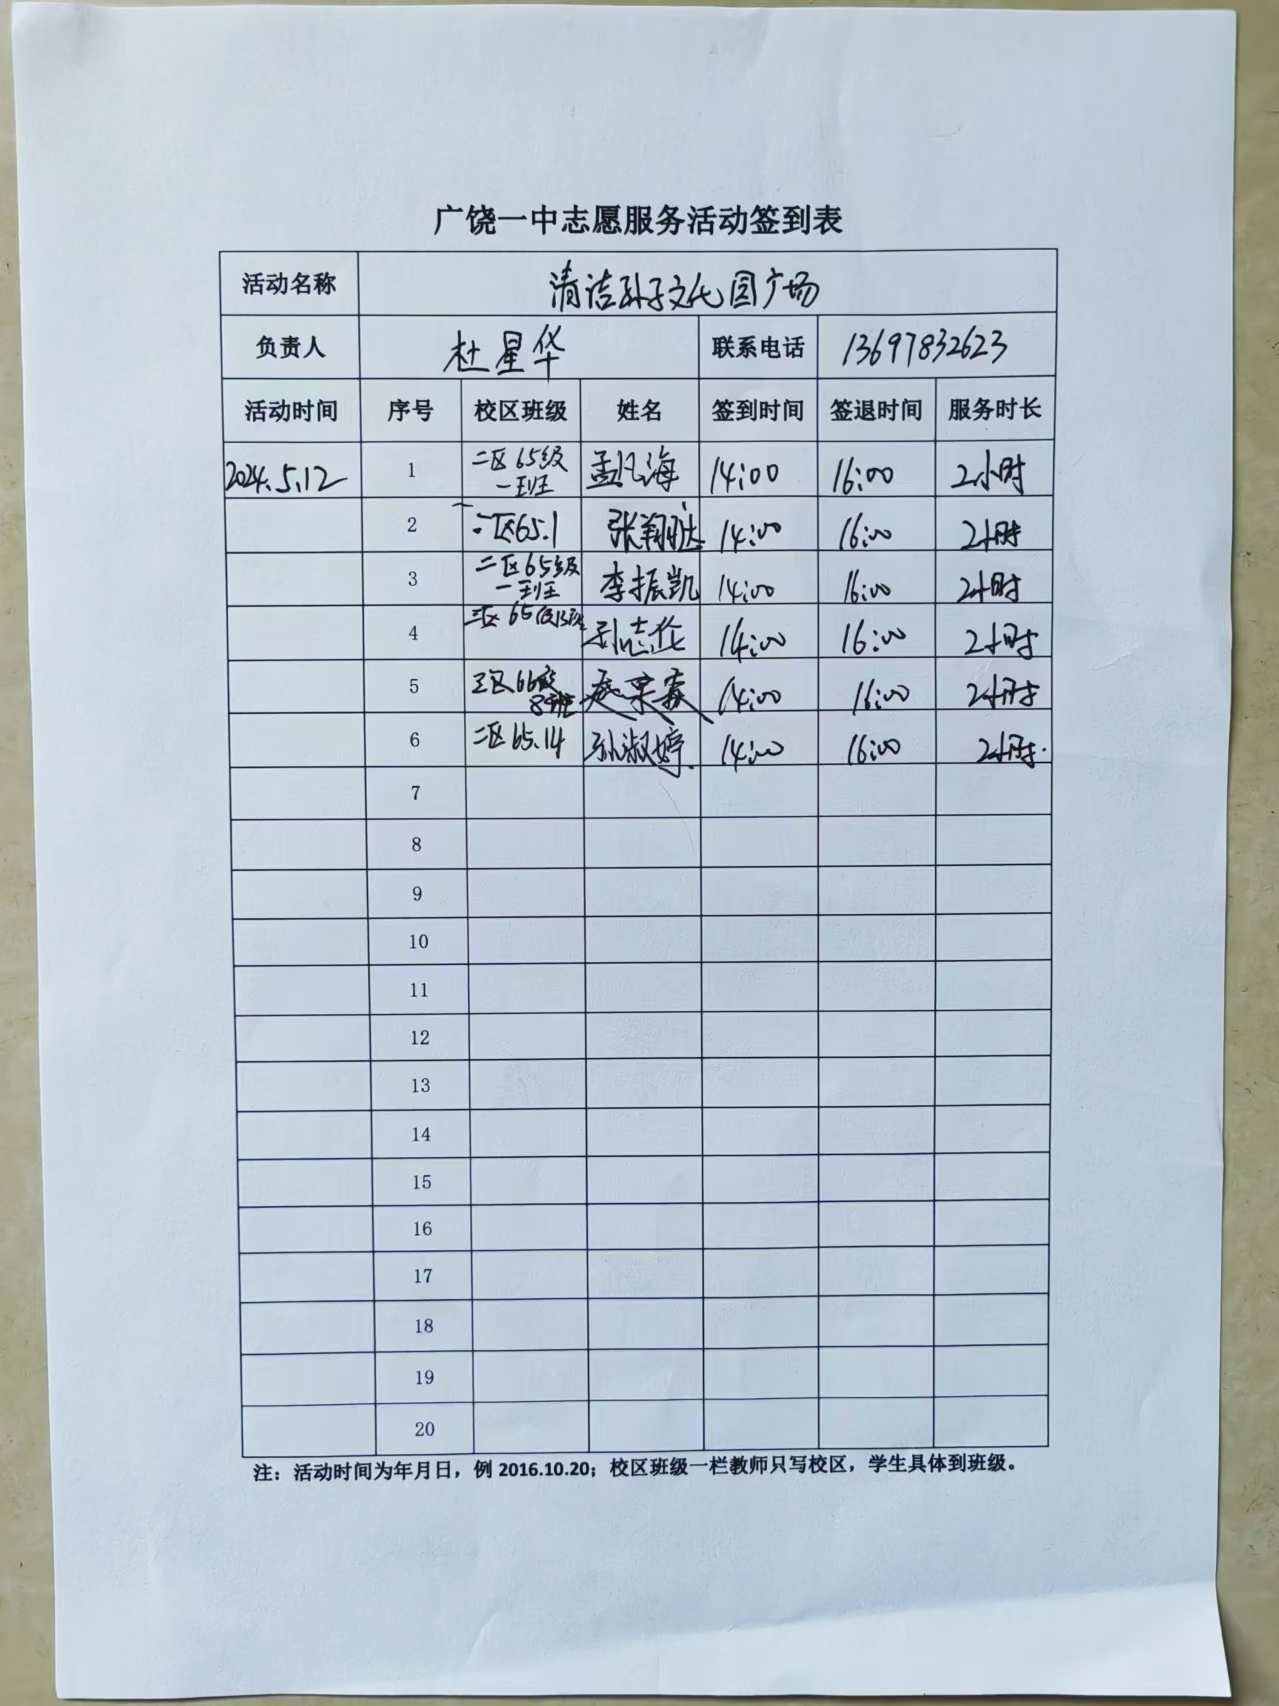 广饶一中志愿服务活动签到表
活动名称 清洁孙子文化园广场
负责人 杜星华 联系电话 13697832623
活动时间 序号 校区班级 姓名 签到时间 签退时间 服务时长
2024.5.12 1 二区65级一班 孟凡海 14:00 16:00 2小时
2 二区65.1 张翔 14:00 16:00 2小时
3 二区65级一班 李振凯 14:00 16:00 2小时
4 二区65级13班 孙志伦 14:00 16:00 2小时
5 三区66级8班 14:00 16:00 2小时
6 二区65.14 孙淑婷 14:00 16:00 2小时.
7
8
9
10
11
12
13
14
15
16
17
18
19
20
注：活动时间为年月日，例 2016.10.20；校区班级一栏教师只写校区，学生具体到班级。